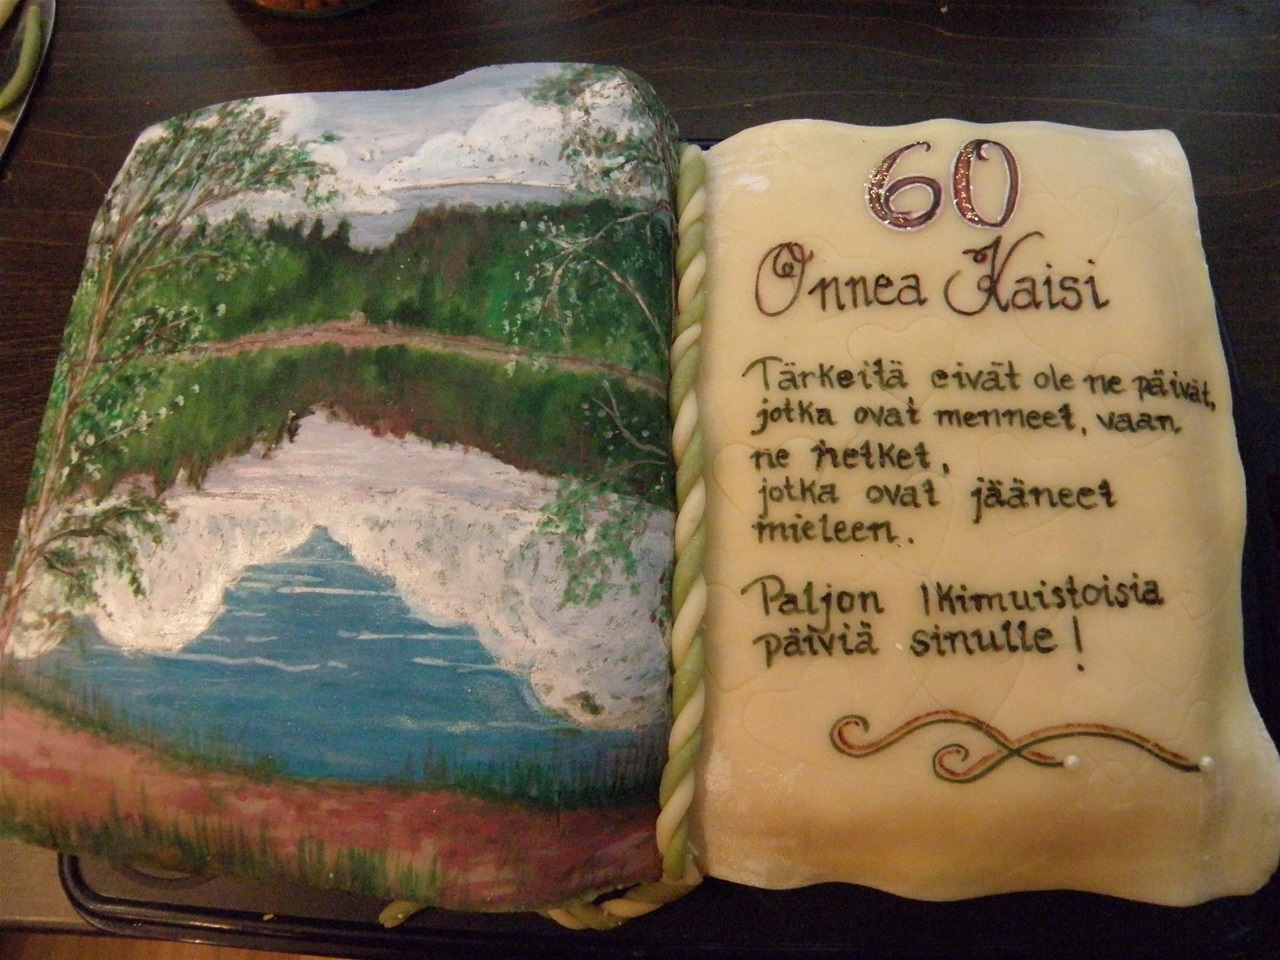 60
Onnea Kaisi
Tärkeitä eivät ole ne päivät,
jotka ovat menneet, vaan
ne hetket,
jotka ovat jääneet
mieleen.
Paljon Ikimuistoisia
päiviä sinulle!